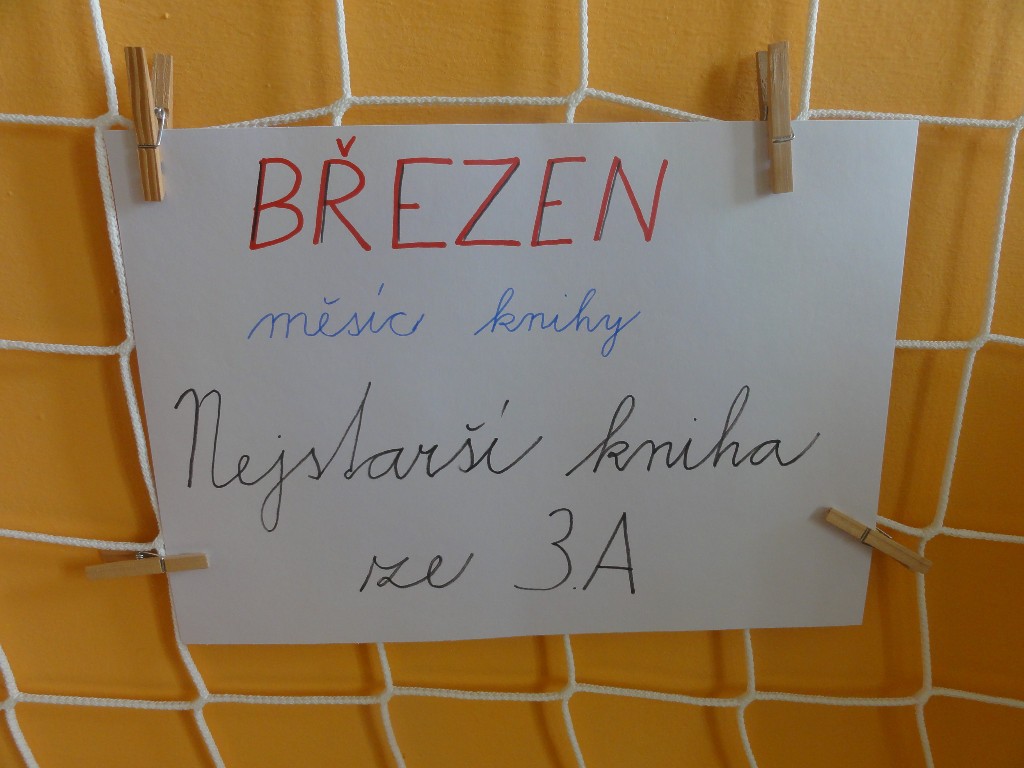 BŘEZEN
měsíc knihy
Nejstarší kniha
ze 3.A